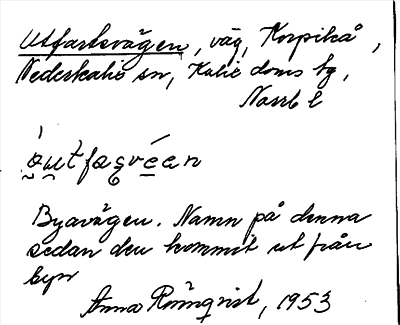 Utfartsvägen, väg, Korpikå,
Nederkalix sn, Kalix doms hg,
Norrb l
Byavägen. Namn på denna
sedan den kommit ut från
byn
Anna Rönnqvist, 1953